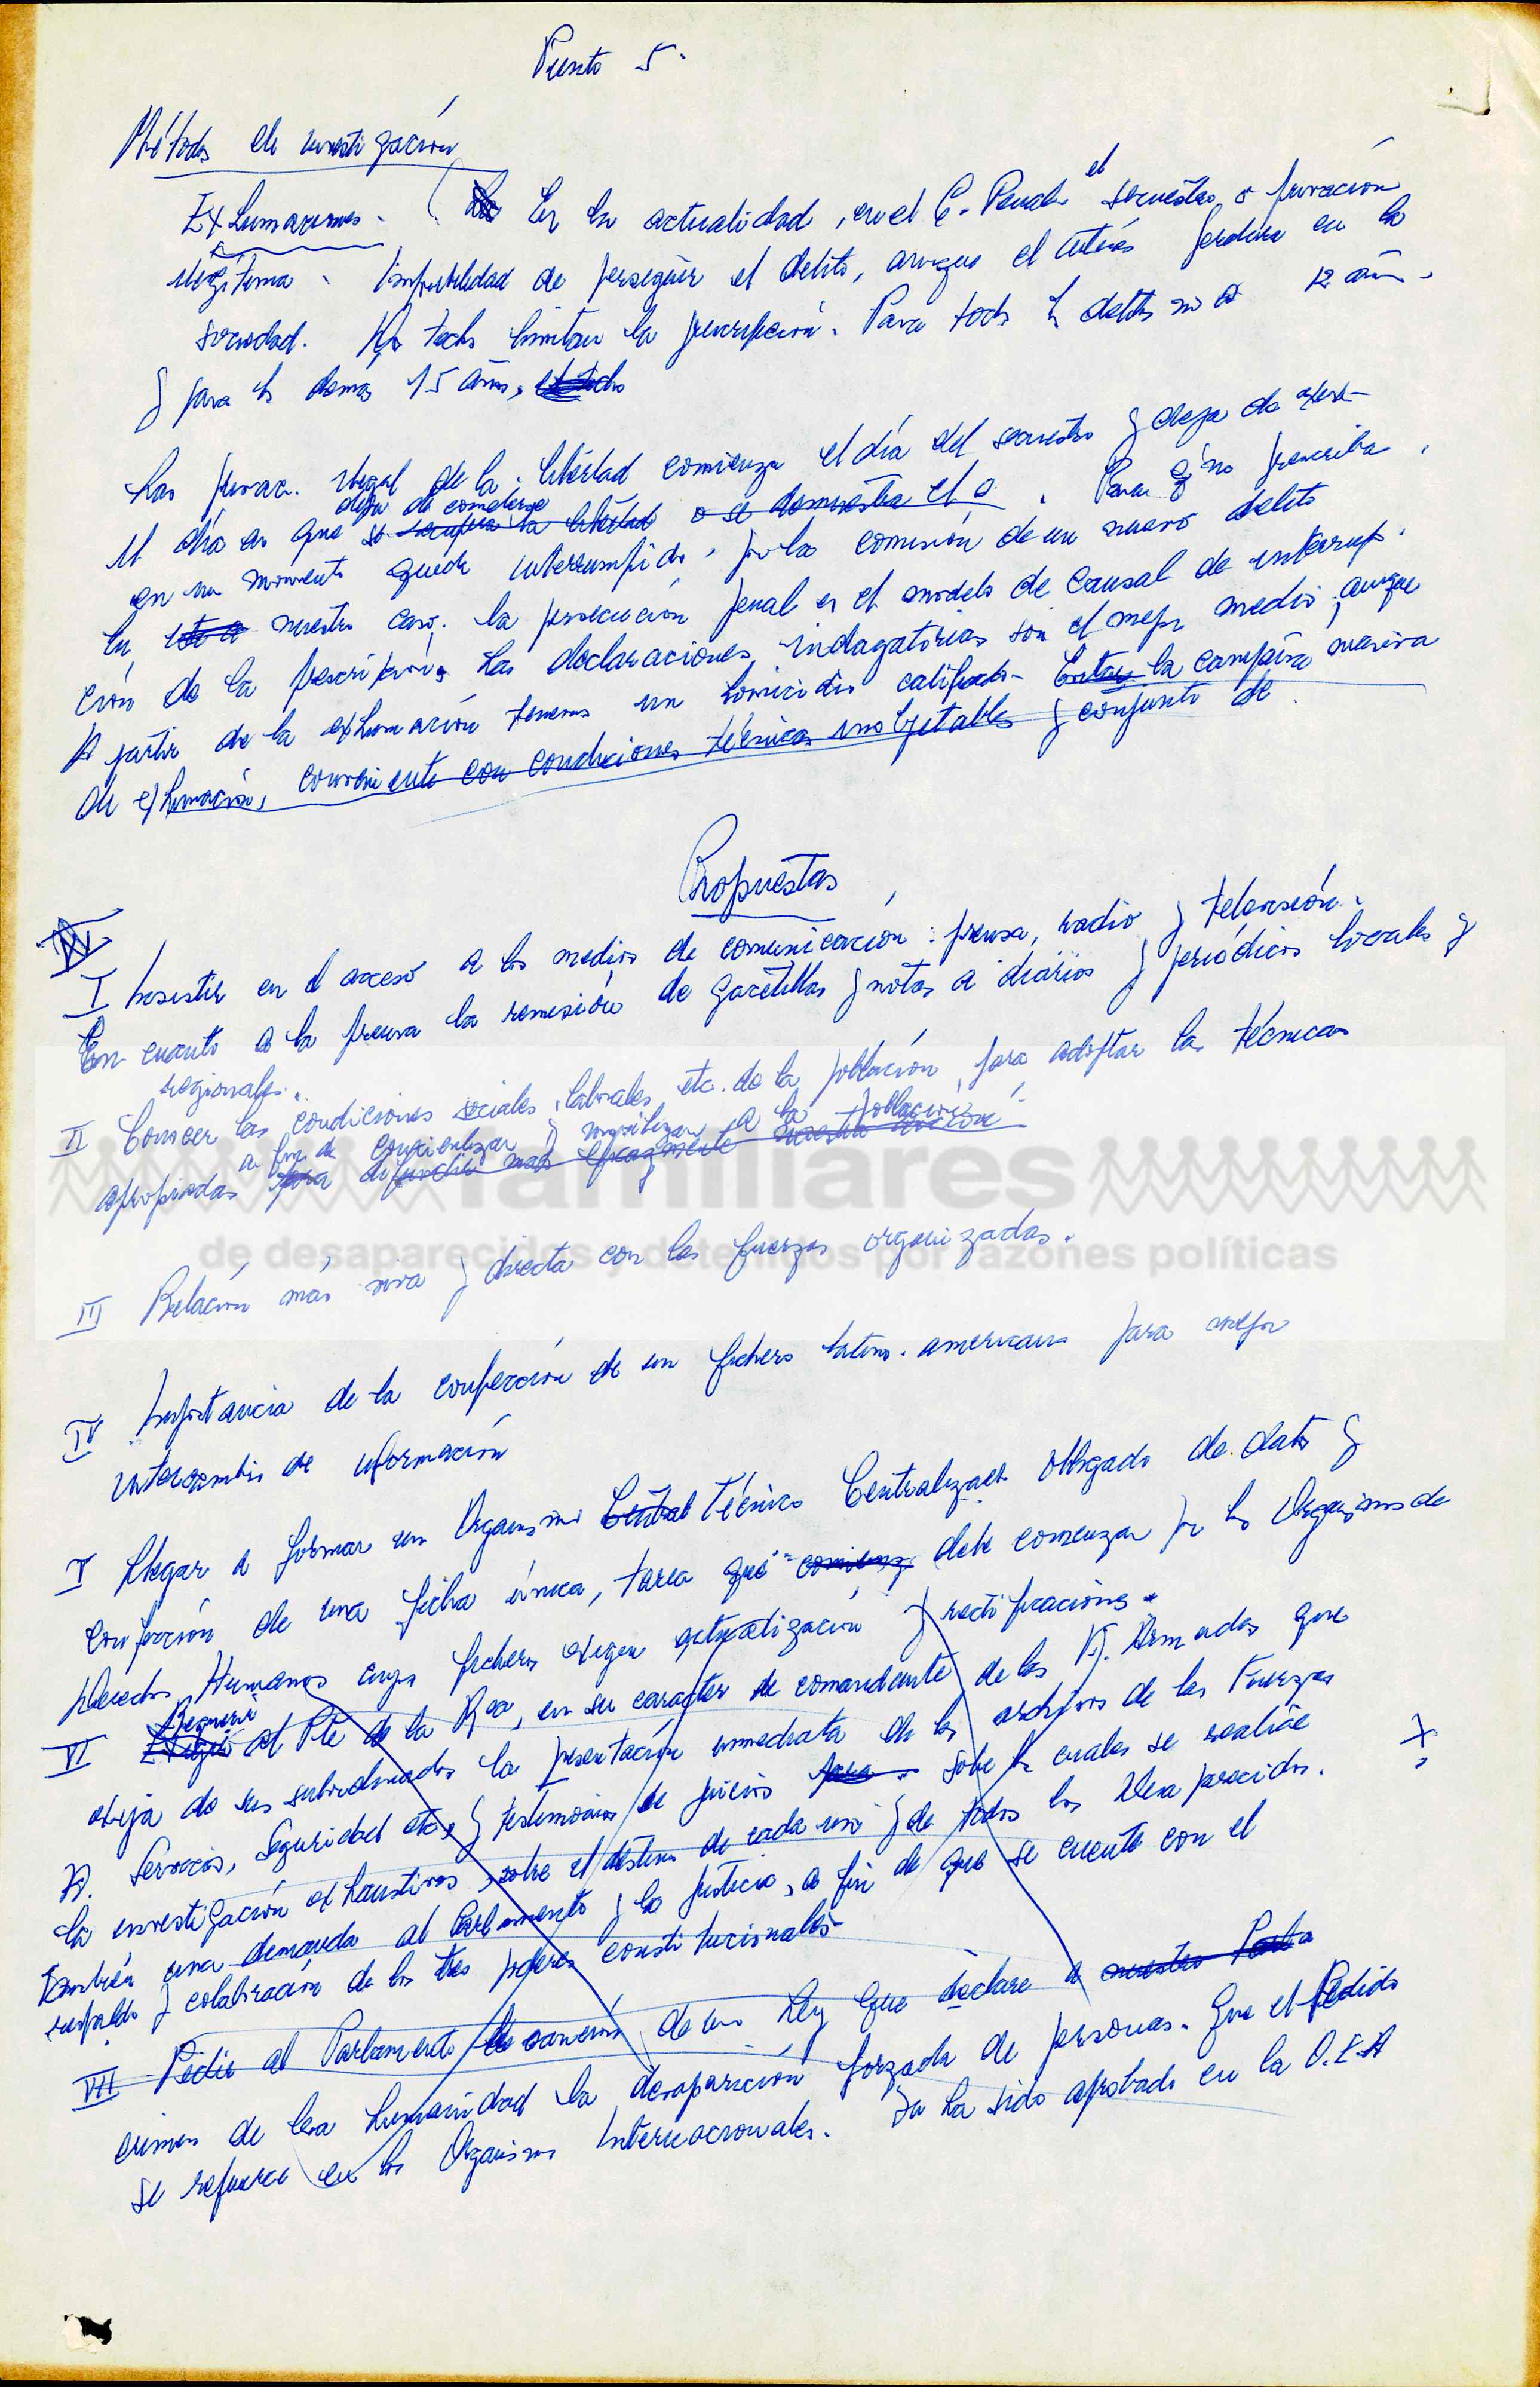 Punto 5.
Métodos de investigación
Exhumaciones. En la actualidad, en el C. Penal el secuestro o privación
ilegítima. Imposibilidad de perseguir el delito, aunque el interés perdura en la
sociedad. limitar la prescripción. Para todos los delitos no es 12 años
y para los demás 15 años,
Las privac. ilegal de la libertad comienza el día del secuestro y deja de
el día en que se deja de cometerse recupera la libertad o se demuestra el o. Para q' no prescriba,
en un momento queda interrumpida, por la comisión de un nuevo delito
En este a nuestro caso, la persecución penal es el modelo de causal de interrup-
ción de la prescripción, las declaraciones indagatorias son el mejor medio, aunque
A partir de la exhumación tenemos un homicidio calificado. Evitar la campaña masiva
de exhumación, conveniente con condiciones técnicas inobjetables y conjunto de
Propuestas
IV
I Insistir en el acceso a los medios de comunicación: prensa, radio y televisión.
En cuanto a la prensa la remisión de gacetillas y notas a diarios y periódicos locales y
regionales.
II Conocer las condiciones sociales, laborales, etc. de la población, para adoptar las técnicas
a fin de concientizar y movilizar a la población.
apropiadas para difundir más eficazmente nuestra acción
familiares
de desaparecidos y detenidos por razones políticas
III Relación más viva y directa con las fuerzas organizadas.
IV Importancia de la confección de un fichero latino-americano para mejor
intercambio de información
V Llegar a formar un Organismo Central Técnico Centralizado obligado de datos y
confección de una ficha única, tarea que comienza debe comenzar por los Organismos de
Derechos Humanos cuyos ficheros exigen actualización y rectificaciones.
Requerir
VI Exigir al Pte de la Rca, en su caracter de comandante de las FF. Armadas que
exija de sus subordinados la presentación inmediata de los archivos de las Fuerzas
FF. Servicios, Seguridad etc, y testimonios de juicios para sobre los cuales se realice
la investigación exhaustiva, sobre el destino de cada uno y de todos los Desaparecidos.
También una demanda al Parlamento y la Justicia, a fin de que se cuente con el
respaldo y colaboración de los tres poderes constitucionales
VII Pedir al Parlamento la sanción de una Ley que declare a nuestro
crimen de lesa humanidad la desaparición forzada de personas. Que el Pedido
se refuerce en los Organismos Internacionales. Ya ha sido aprobado en la O.E.A